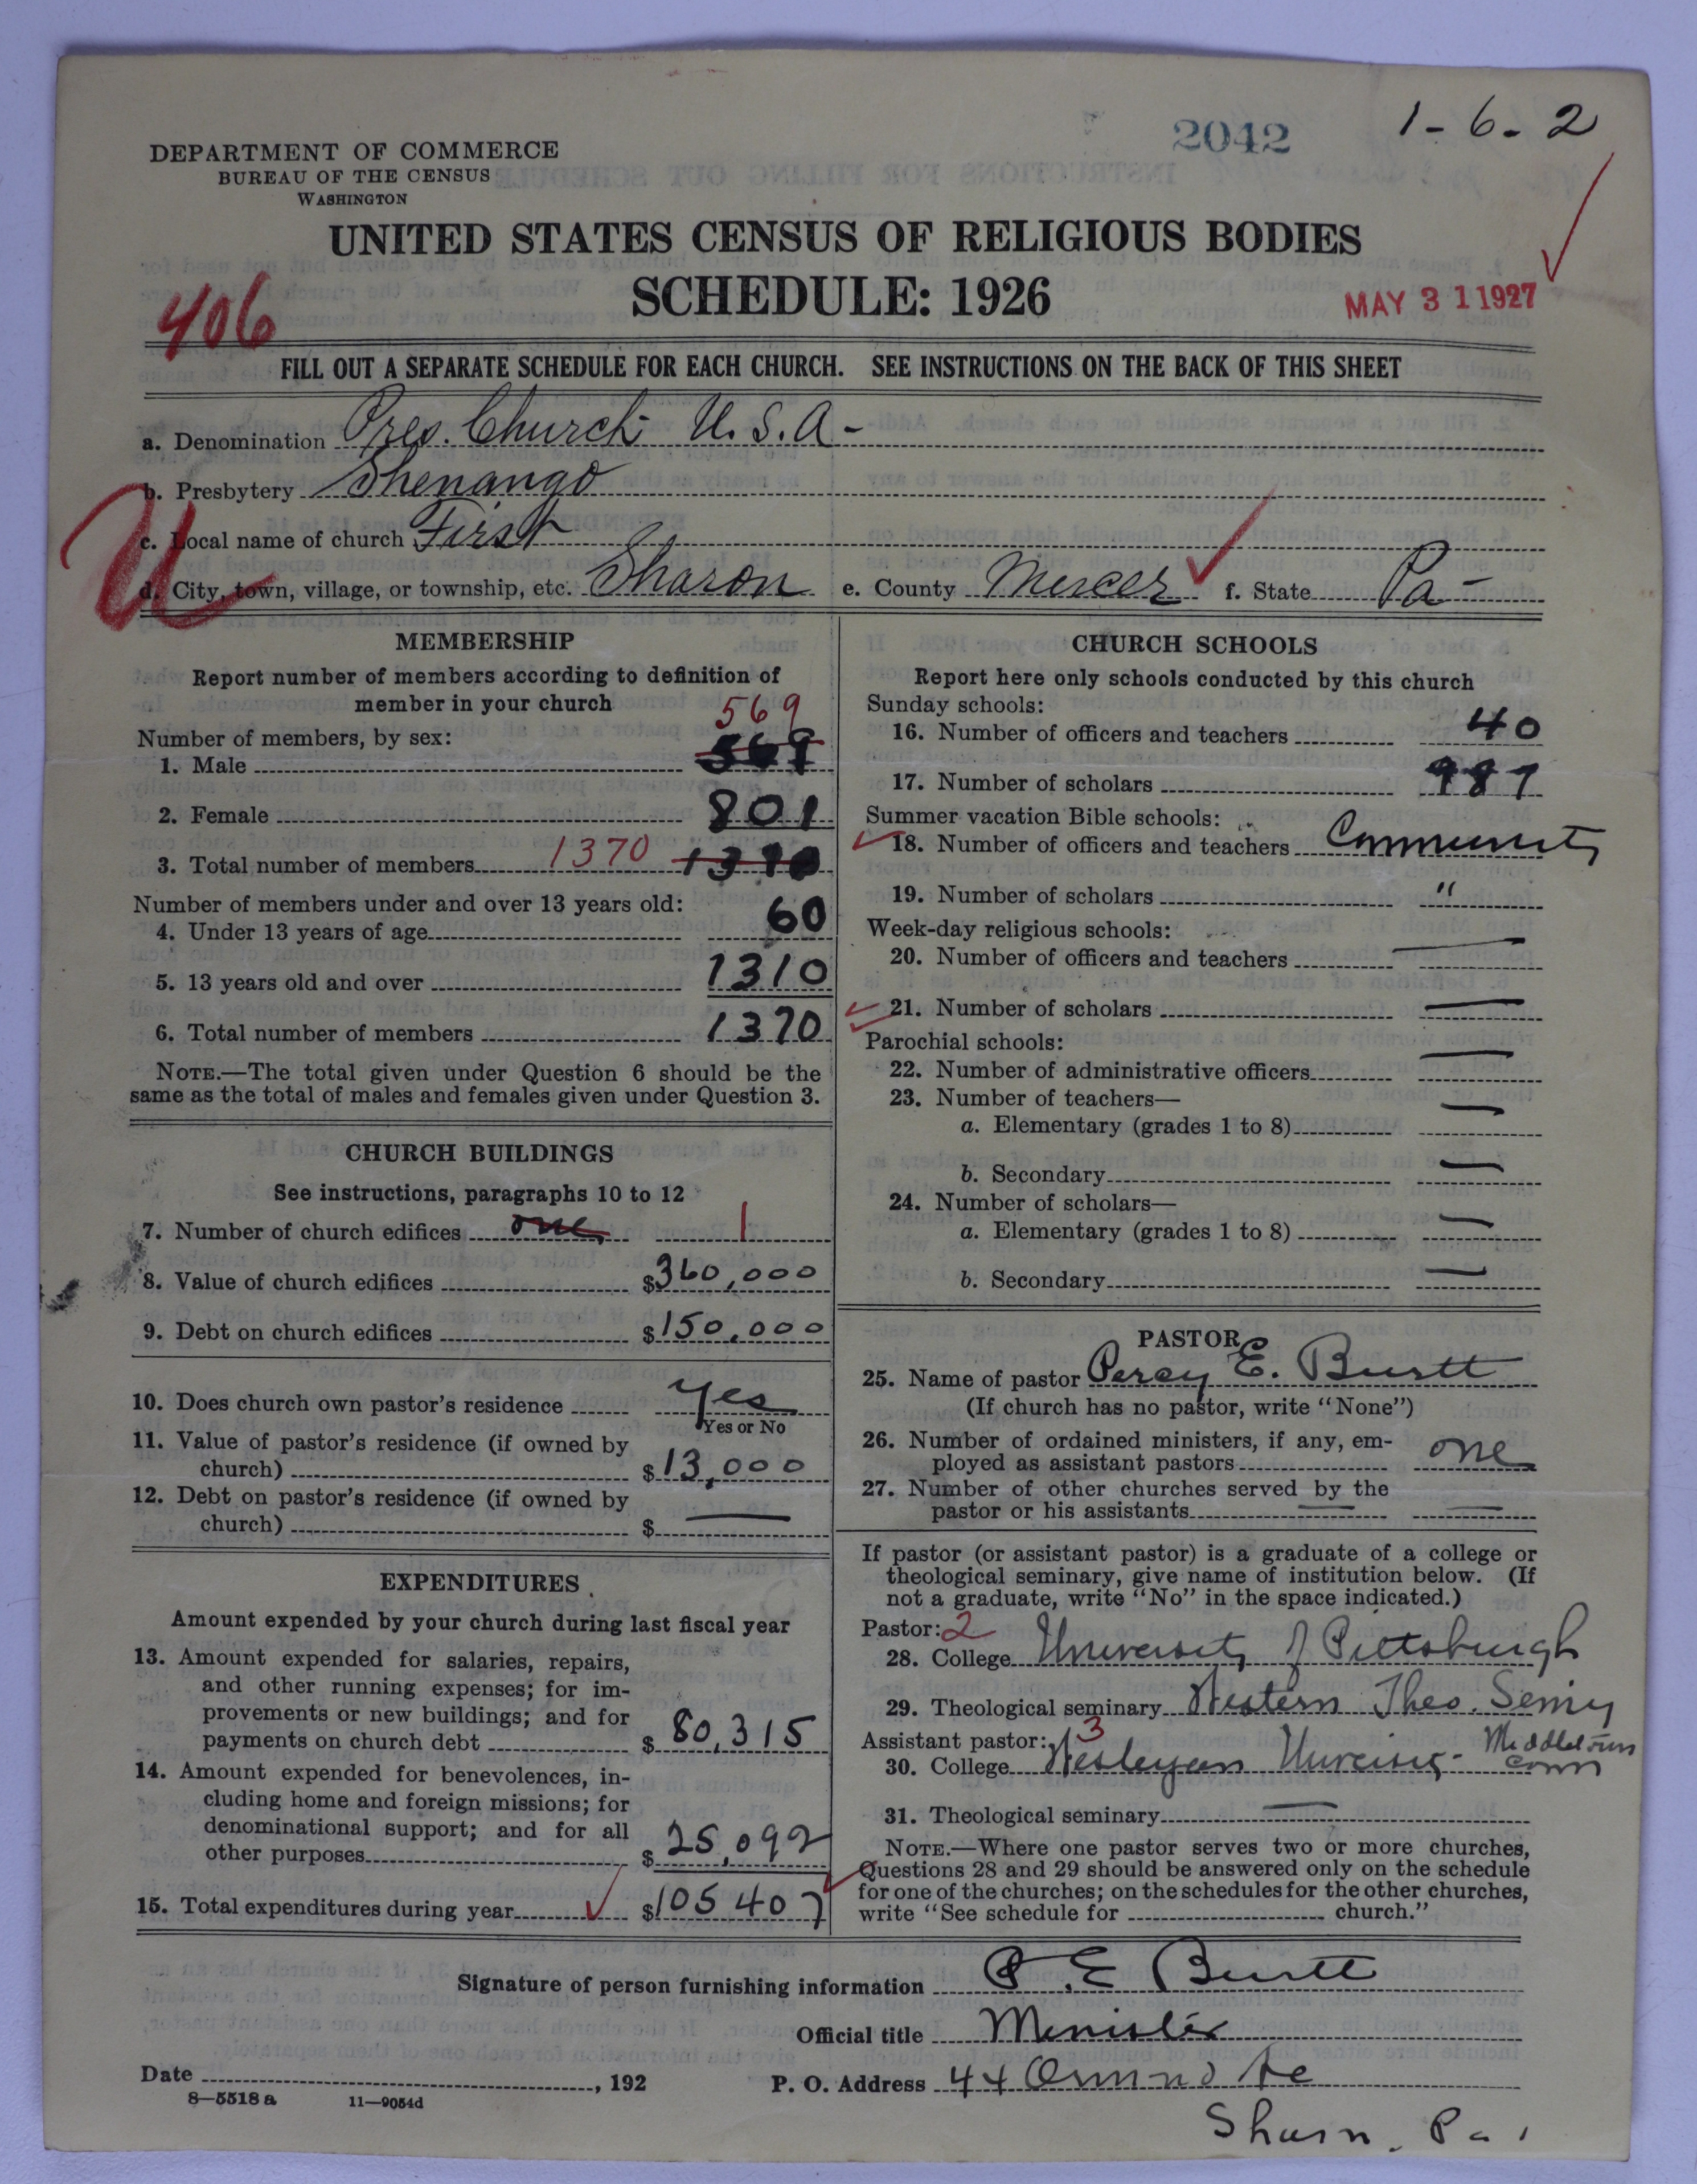 2042
1-6-2
DEPARTMENT OF COMMERCE
BUREAU OF THE CENSUS
WASHINGTON
UNITED STATES CENSUS OF RELIGIOUS BODIES
SCHEDULE: 1926
406
MAY 31 1927
FILL OUT A SEPARATE SCHEDULE FOR EACH CHURCH. SEE INSTRUCTIONS ON THE BACK OF THIS SHEET
a. Denomination Pres. Church U.S.A-
b. Presbytery Shenango
c. Local name of church First
d. City, town, village, or township, etc. Sharon e. County Mercer f. State Pa-
MEMBERSHIP
Report number of members according to definition of
member in your church
569
Number of members, by sex:
1. Male 569
2. Female 801
3. Total number of members 1370 1370
Number of members under and over 13 years old:
4. Under 13 years of age 60
5. 13 years old and over 1310
6. Total number of members 1370
NOTE.—The total given under Question 6 should be the
same as the total of males and females given under Question 3.
CHURCH BUILDINGS
See instructions, paragraphs 10 to 12
7. Number of church edifices one 1
8. Value of church edifices $360,000
9. Debt on church edifices $150,000
10. Does church own pastor's residence Yes
Yes or No
11. Value of pastor's residence (if owned by
church) $13,000
12. Debt on pastor's residence (if owned by
church) $ —
EXPENDITURES
Amount expended by your church during last fiscal year
13. Amount expended for salaries, repairs,
and other running expenses; for im-
provements or new buildings; and for
payments on church debt $80,315
14. Amount expended for benevolences, in-
cluding home and foreign missions; for
denominational support; and for all
other purposes $25,092
15. Total expenditures during year $105407
CHURCH SCHOOLS
Report here only schools conducted by this church
Sunday schools:
16. Number of officers and teachers 40
17. Number of scholars 987
Summer vacation Bible schools:
18. Number of officers and teachers Community
19. Number of scholars "
Week-day religious schools:
20. Number of officers and teachers —
21. Number of scholars —
Parochial schools:
22. Number of administrative officers —
23. Number of teachers—
a. Elementary (grades 1 to 8) —
b. Secondary —
24. Number of scholars—
a. Elementary (grades 1 to 8) —
b. Secondary —
PASTOR
25. Name of pastor Percy E. Burtt
(If church has no pastor, write "None")
26. Number of ordained ministers, if any, em-
ployed as assistant pastors one
27. Number of other churches served by the
pastor or his assistants —
If pastor (or assistant pastor) is a graduate of a college or
theological seminary, give name of institution below. (If
not a graduate, write "No" in the space indicated.)
Pastor: 2
28. College University of Pittsburgh
29. Theological seminary Western Theo. Seminy
Assistant pastor: 3
30. College Wesleyan University- Middletown Conn
31. Theological seminary —
NOTE.—Where one pastor serves two or more churches,
Questions 28 and 29 should be answered only on the schedule
for one of the churches; on the schedules for the other churches,
write "See schedule for church."
Signature of person furnishing information P.E Burtt
Official title Minister
Date , 192
P. O. Address 44 Ormond Ae
Sharn, Pa.
8—5518 a 11—9054d